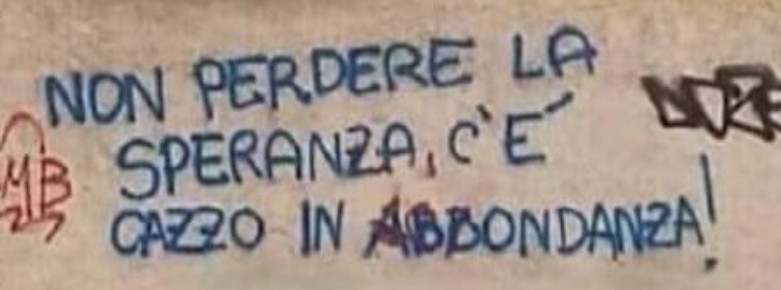 NON PERDERE LA
SPERANZA, C'É
CAZZO IN ABBONDANZA!
MB